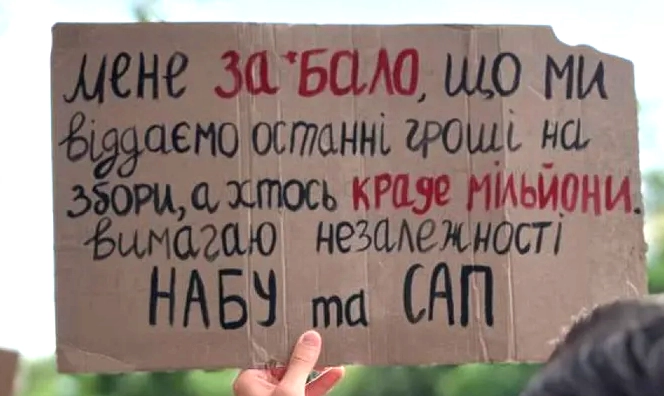 мене за*бало, що ми
віддаємо останні гроші на
збори, а хтось краде мільйони.
вимагаю незалежності
НАБУ та САП